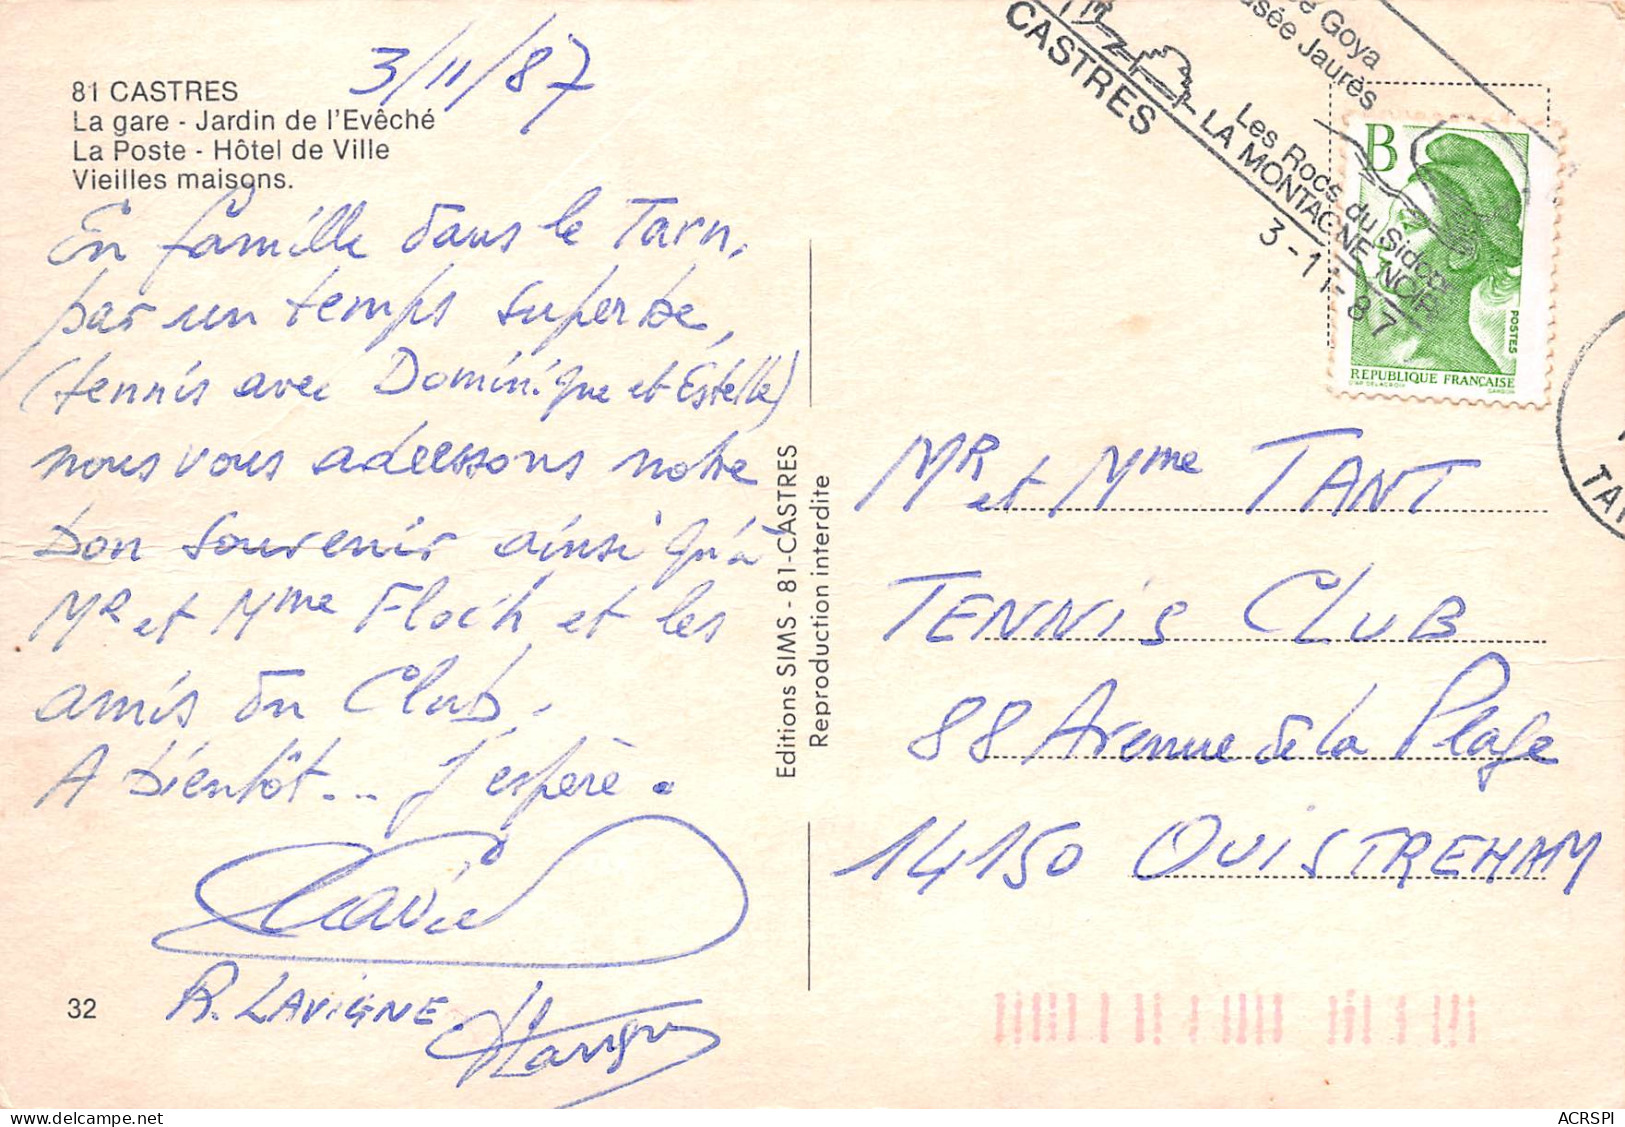 81 CASTRES
La gare - Jardin de l'Evêché
La Poste - Hôtel de Ville
Vieilles maisons.
3/11/87
En famille dans le Tarn,
par un temps superbe,
(tennis avec Dominique et Estelle)
nous vous adressons notre
bon souvenir ainsi qu'à
MR et Mme Floch et les
amis du Club.
A bientôt... j'espère.
R. LAVIGNE
32
Editions SIMS - 81-CASTRES
Reproduction interdite
Goya
Musée Jaurès
Les Rocs du Sidobre
LA MONTAGNE NOIRE
CASTRES
3-11-87
B
POSTES
REPUBLIQUE FRANÇAISE
D'AP. DELACROIX
GANDON
TA
MR et Mme TANT
TENNIS CLUB
88 Avenue de la Plage
14150 OUISTREHAM
ACRSPI